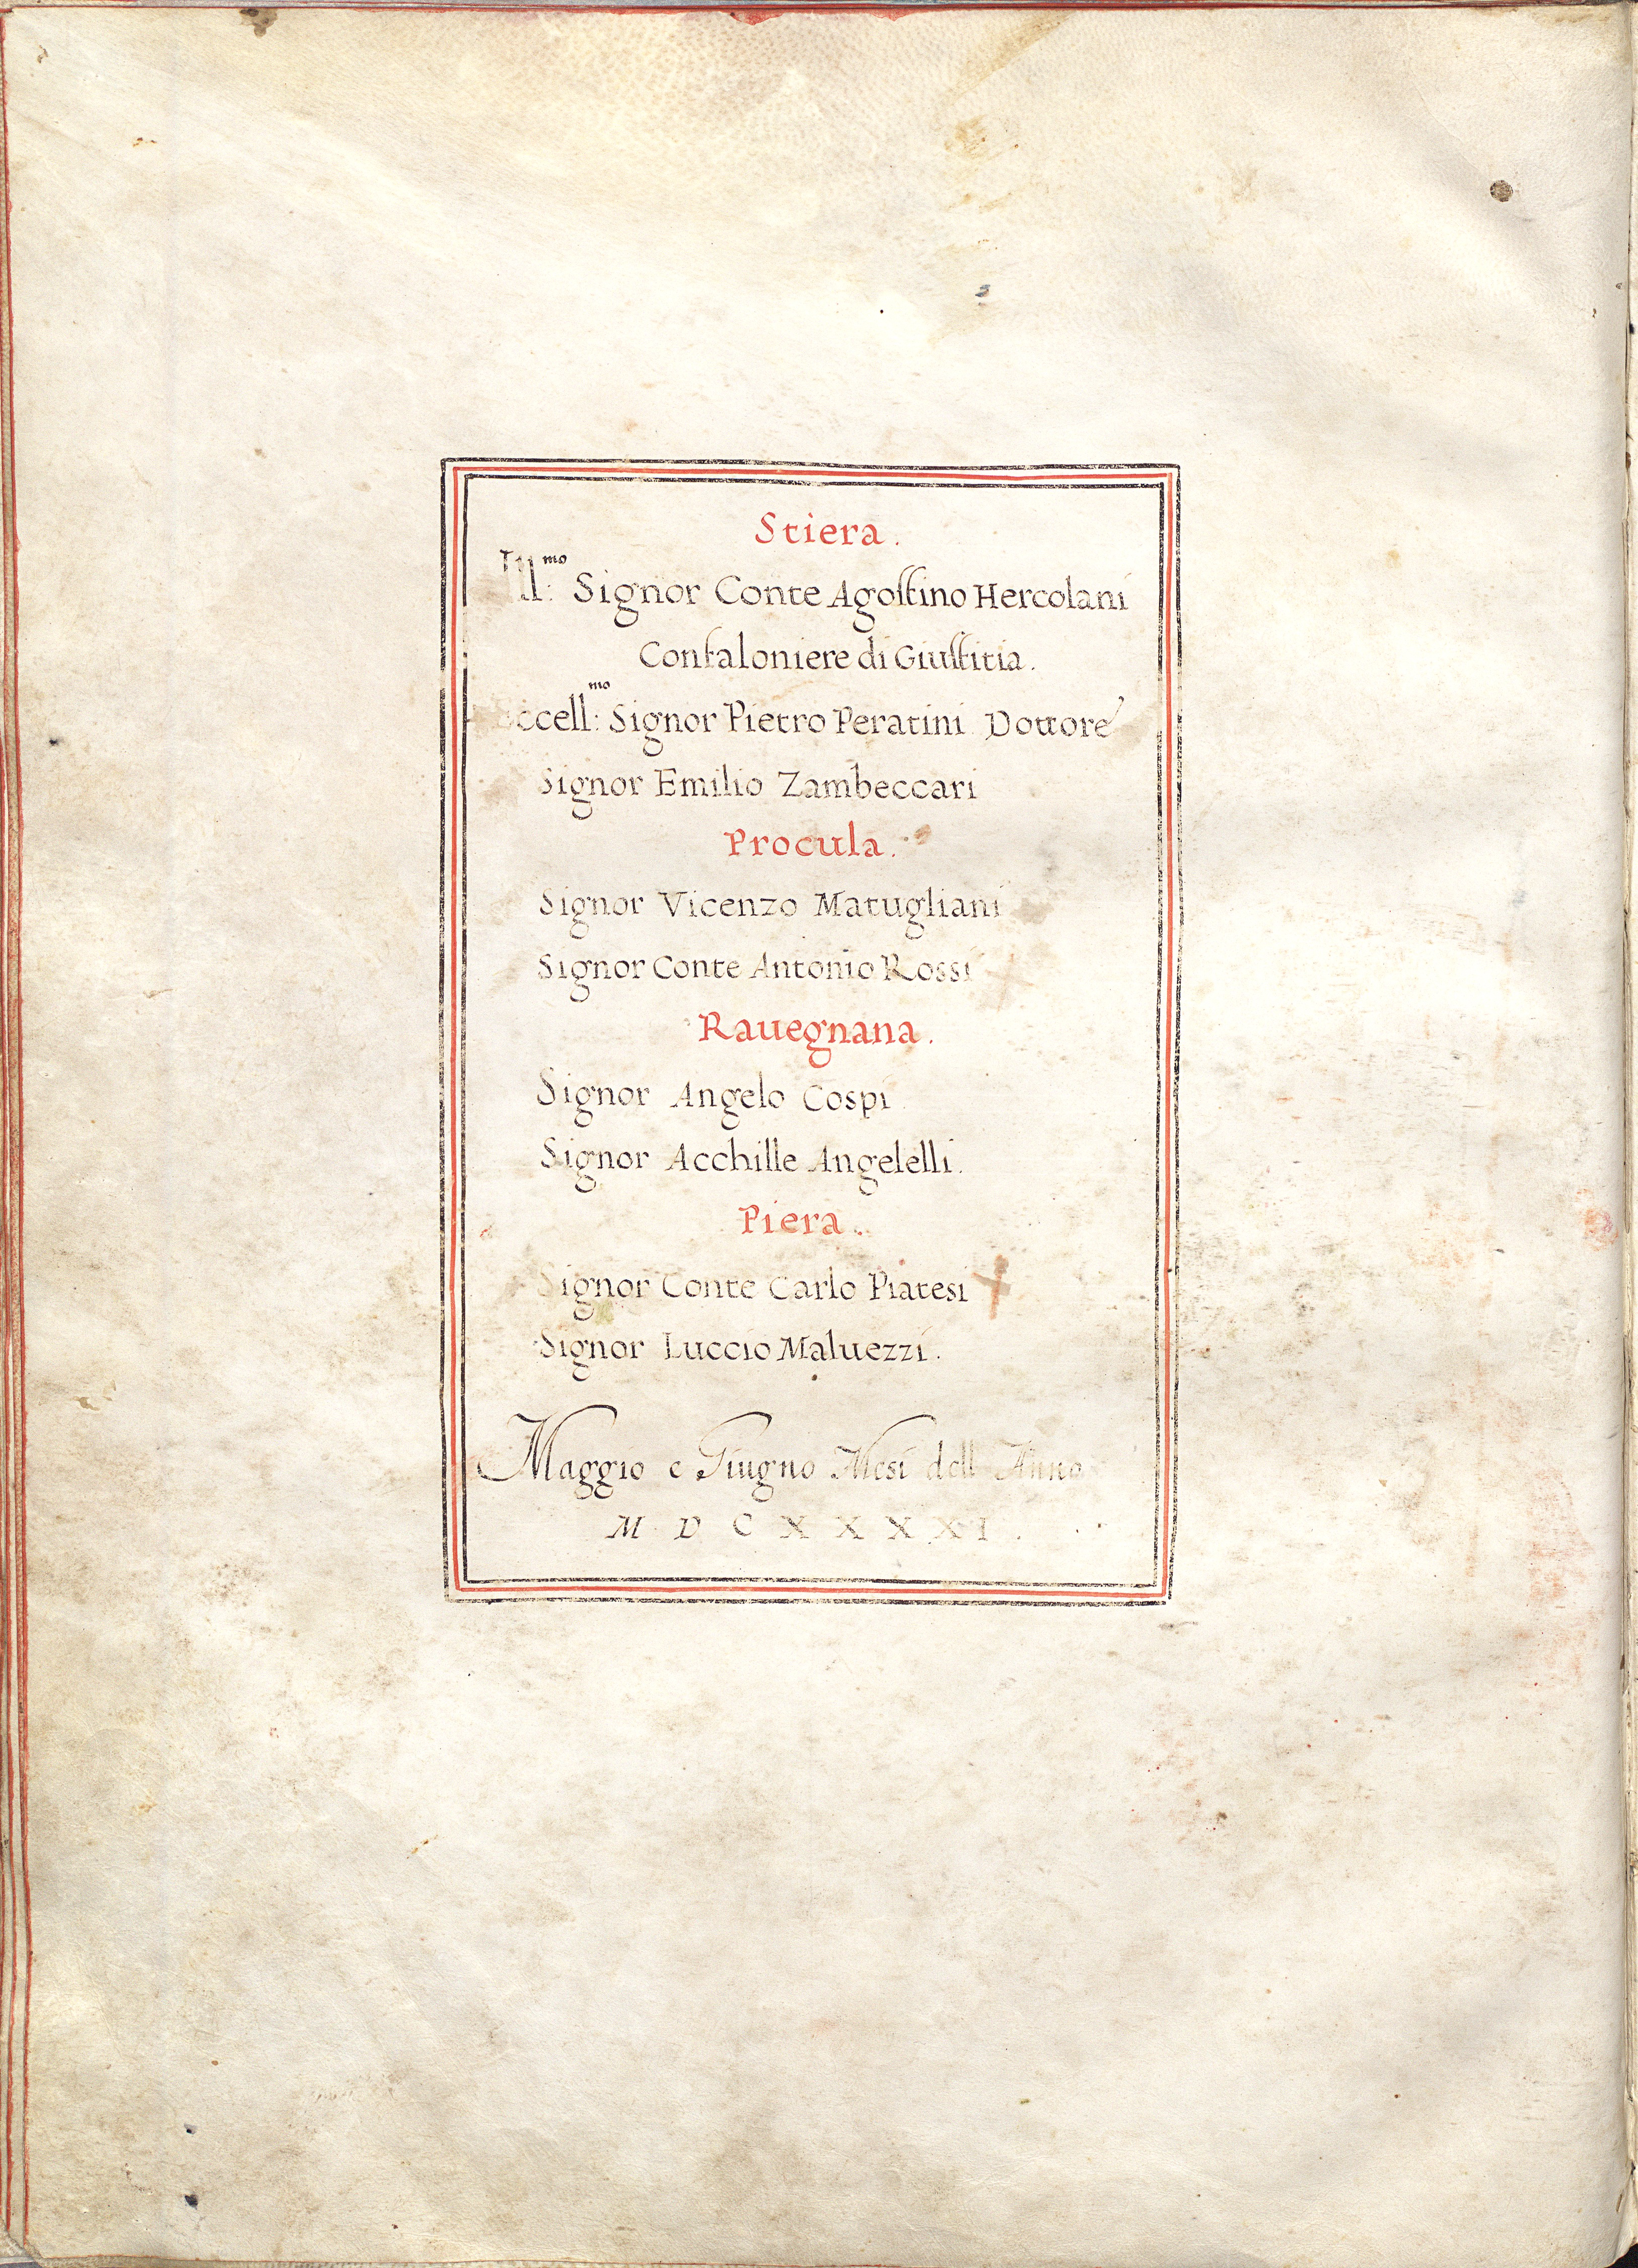 Stiera.
Ill:mo Signor Conte Agostino Hercolani
Confaloniere di Giustitia.
Eccell:mo Signor Pietro Peratini Dottore
Signor Emilio Zambeccari
Procula.
Signor Vicenzo Matugliani
Signor Conte Antonio Rossi
Rauegnana.
Signor Angelo Cospi
Signor Acchille Angelelli.
Piera.
Signor Conte Carlo Piatesi
Signor Luccio Maluezzi.
Maggio e Giugno Mesi dell Anno
M D C X X X X I.